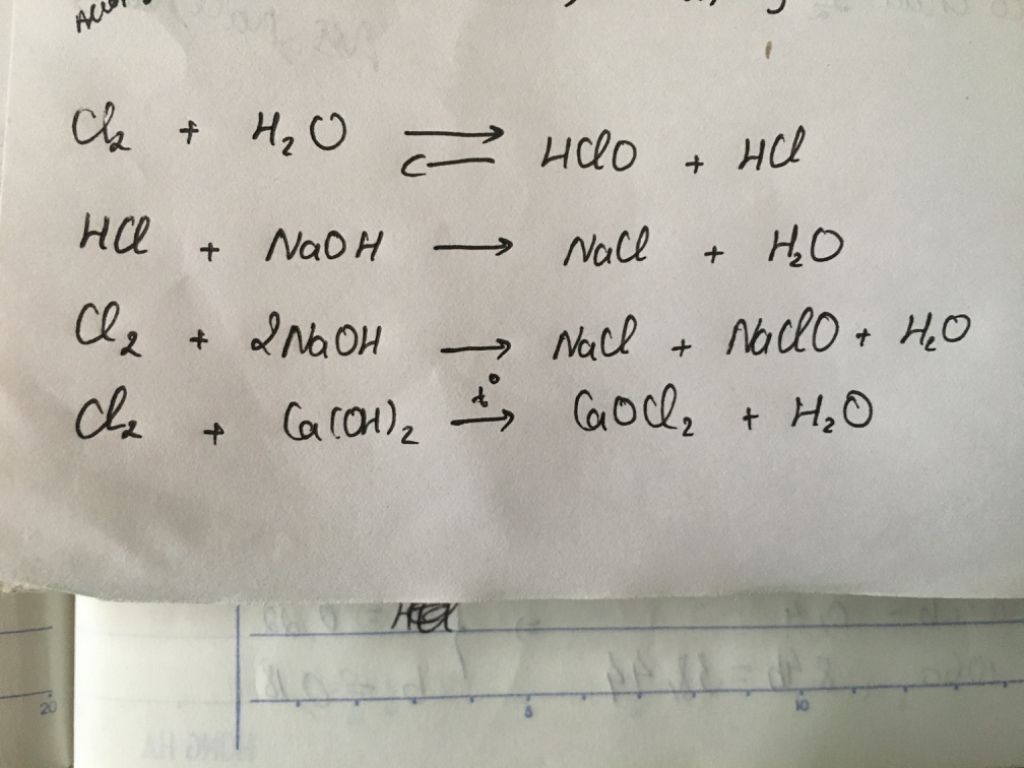 Cl₂ + H₂O ⇌ HClO + HCl
HCl + NaOH → NaCl + H₂O
Cl₂ + 2NaOH → NaCl + NaClO + H₂O
Cl₂ + Ca(OH)₂ →(t°) CaOCl₂ + H₂O
20 5 10